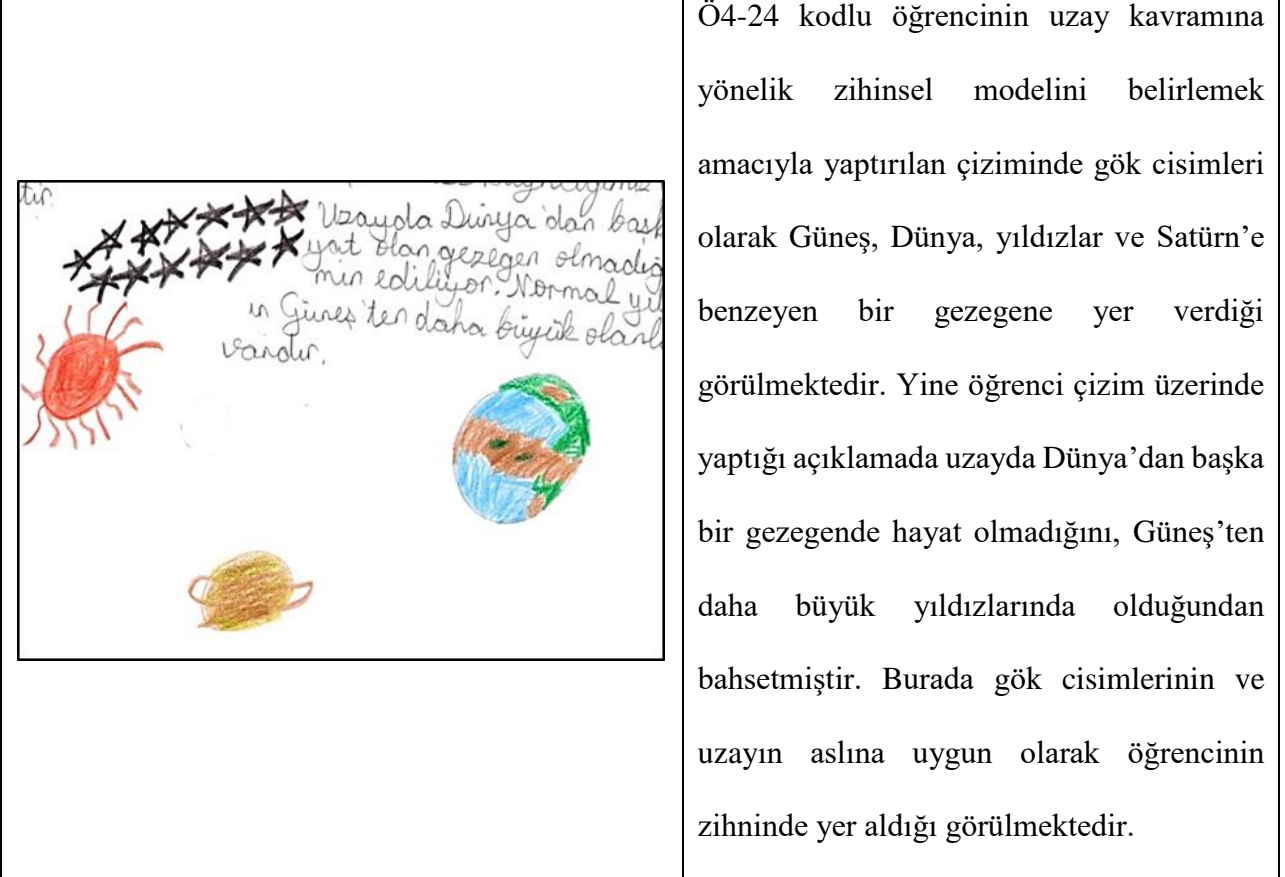 tır.
Uzayda Dünya'dan başk
yat olan gezegen olmadığ
min ediliyor. Normal yı
ın Güneş'ten daha büyük olanl
vardır.
Ö4-24 kodlu öğrencinin uzay kavramına
yönelik zihinsel modelini belirlemek
amacıyla yaptırılan çiziminde gök cisimleri
olarak Güneş, Dünya, yıldızlar ve Satürn’e
benzeyen bir gezegene yer verdiği
görülmektedir. Yine öğrenci çizim üzerinde
yaptığı açıklamada uzayda Dünya’dan başka
bir gezegende hayat olmadığını, Güneş’ten
daha büyük yıldızlarında olduğundan
bahsetmiştir. Burada gök cisimlerinin ve
uzayın aslına uygun olarak öğrencinin
zihninde yer aldığı görülmektedir.